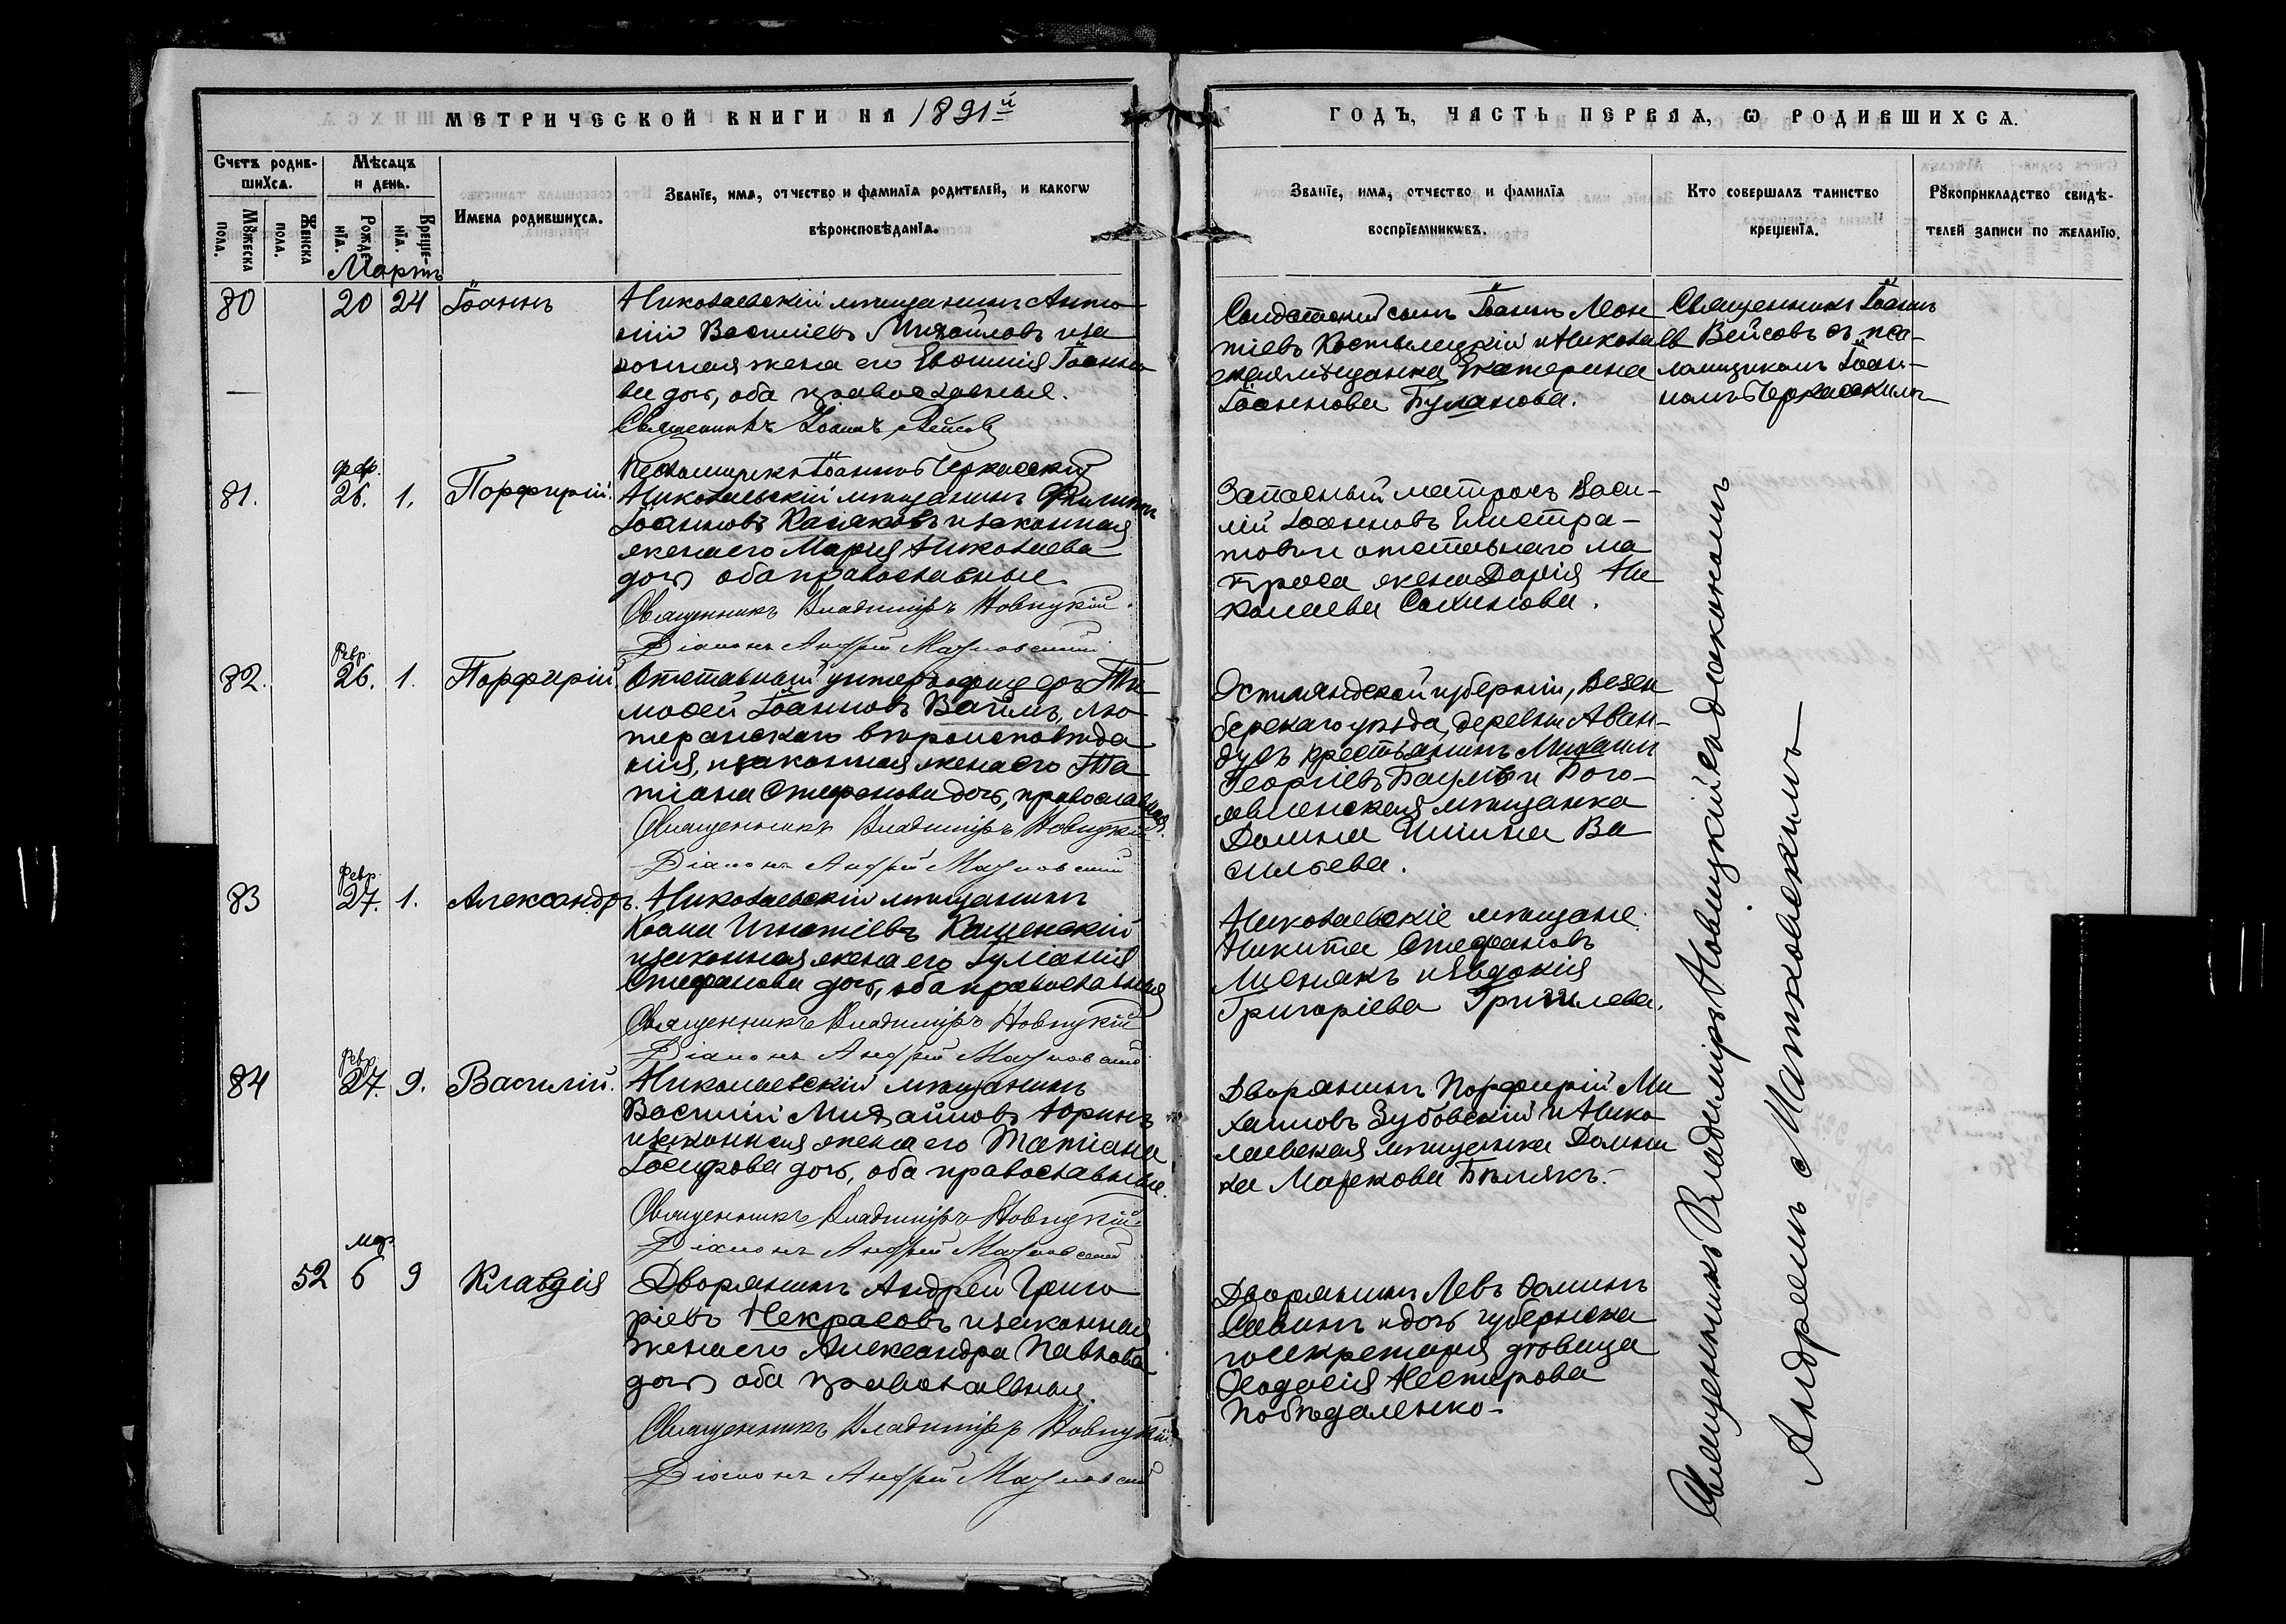 МЕТРИЧЕСКОЙ КНИГИ НА 1891й
ГОДЪ, ЧАСТЬ ПЕРВАЯ, Ѡ РОДИВШИХСѦ.
Счетъ родив-
шихсѧ.
Мѣсѧцъ
и день.
Мꙋжеска
пола.
Женска
пола.
Рожде-
нїѧ.
Креще-
нїѧ.
Имена родившихсѧ.
Званїе, имѧ, отчество и фамилїѧ родителей, и какогѡ
вѣроисповѣданїѧ.
Званїе, имѧ, отчество и фамилїѧ
воспрїемникѡвъ.
Кто совершалъ таинство
крещенїѧ.
Рꙋкоприкладство свидѣ-
телей записи по желанїю.
Мартъ
80 20 24 Іоаннъ
Николаевскій мѣщанинъ Анто
ній Василіевъ Михайловъ иза
конная жена его Евѳимія Іоанно
ва дочь, оба православные.
Священникъ Іоаннъ Вейсовъ
Псаломщикъ Іоаннъ Черкасскій
Солдатскій сынъ Іоаннъ
тіевъ Костылецкій и Никола
ская мѣщанка Екатерина
Іоаннова Буланова.
Священникъ Іоаннъ
Вейсовъ съ пса-
ломщикомъ Іоан-
номъ Черкасскимъ
81. февр. 26. 1. Порфирій.
Николаевскій мѣщанинъ Филиппъ
Іоанновъ Казаковъ и законная
жена его Марія Николаева
дочь оба православные.
Священникъ Владиміръ Новицкій.
Діаконъ Андрей Матковскій
Запасный матросъ Васи-
лій Іоанновъ Елистра-
товъ и отставнаго ма
троса жена Дарія Ни
колаева Салинова.
82. Февр. 26. 1. Порфирій
Отставной унтеръ офицеръ Ти
моѳей Іоанновъ Ваймъ, лю-
теранскаго вѣроисповѣда
нія, и законная жена его Та
тіана Стефанова дочь, православная.
Священникъ Владиміръ Новицкій.
Діаконъ Андрей Матковскій
Эстляндской губерніи, Везен
бергскаго уѣзда, деревни Аван-
дусъ крестьянинъ Михаилъ
Георгіевъ и Бого-
явленская мѣщанка
Домна Ва
сильева.
83 Февр. 27. 1. Александръ.
Николаевскій мѣщанинъ
Косма Игнатіевъ Каменскій
и законная жена его Іуліанія
Стефанова дочь, оба православныя
Священникъ Владиміръ Новицкій
Діаконъ Андрей Матковскій
Николаевскіе мѣщане:
Никита Стефановъ
и Евдокія
Григоріева
84 Февр. 27. 9. Василій.
Николаевскій мѣщанинъ
Василій Михайловъ Юринъ
и законная жена его Татіана
Іосифова дочь, оба православные.
Священникъ Владиміръ Новицкій.
Діаконъ Андрей Матковскій
Дворянинъ Порфирій Ми
хаиловъ Зубовскій и Нико
лаевская мѣщанка Домни
ка Маркова Бѣлякъ.
52 мар 6 9 Клавдія
Дворянинъ Андрей Григо
ріевъ Некрасовъ и законная
жена его Александра Павлова
дочь оба православныя.
Священникъ Владиміръ Новицкій.
Діаконъ Андрей Матковскій
Дворянинъ Левъ Ѳоминъ
Савинъ и дочь губернска
го секретаря дѣвица
Ѳеодосія Нестерова
Побѣдаленко.
Священникъ Владиміръ Новицкій съ діакономъ
Андреемъ Матковскимъ